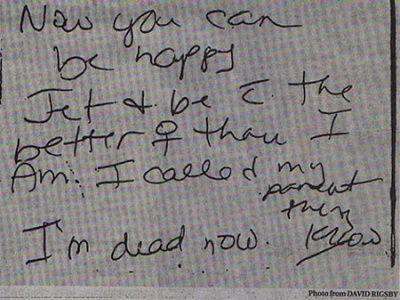 Now you can
be happy
Jet & be c̄ the
better ♀ than I
Am. I called my
parent
they
I'm dead now. Know
Photo from DAVID RIGSBY